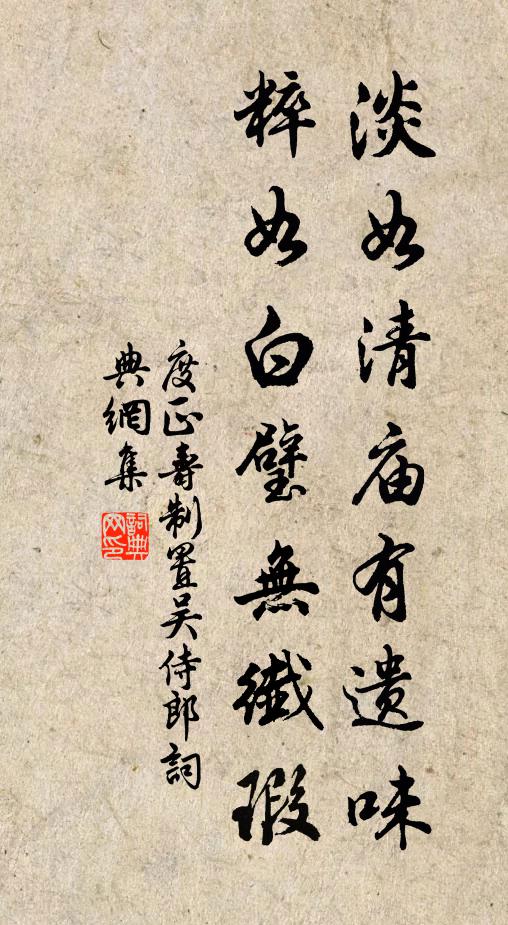 淡如清庙有遗味
粹如白璧無纖瑕
度正壽制置吴侍郎詞
典網集
詞典网印